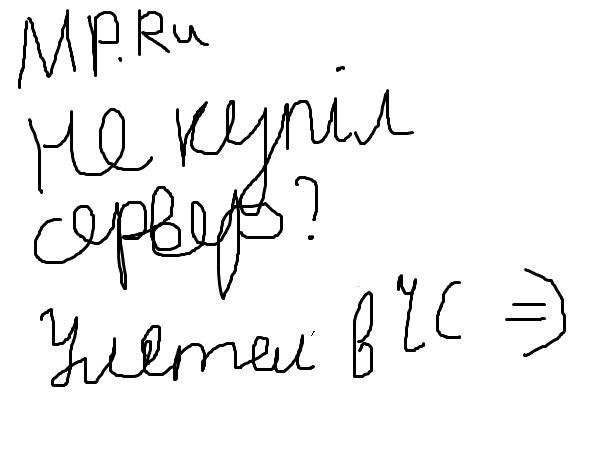 MP.Ru
Не купіл
сервер?
Улетел в ЧС =)